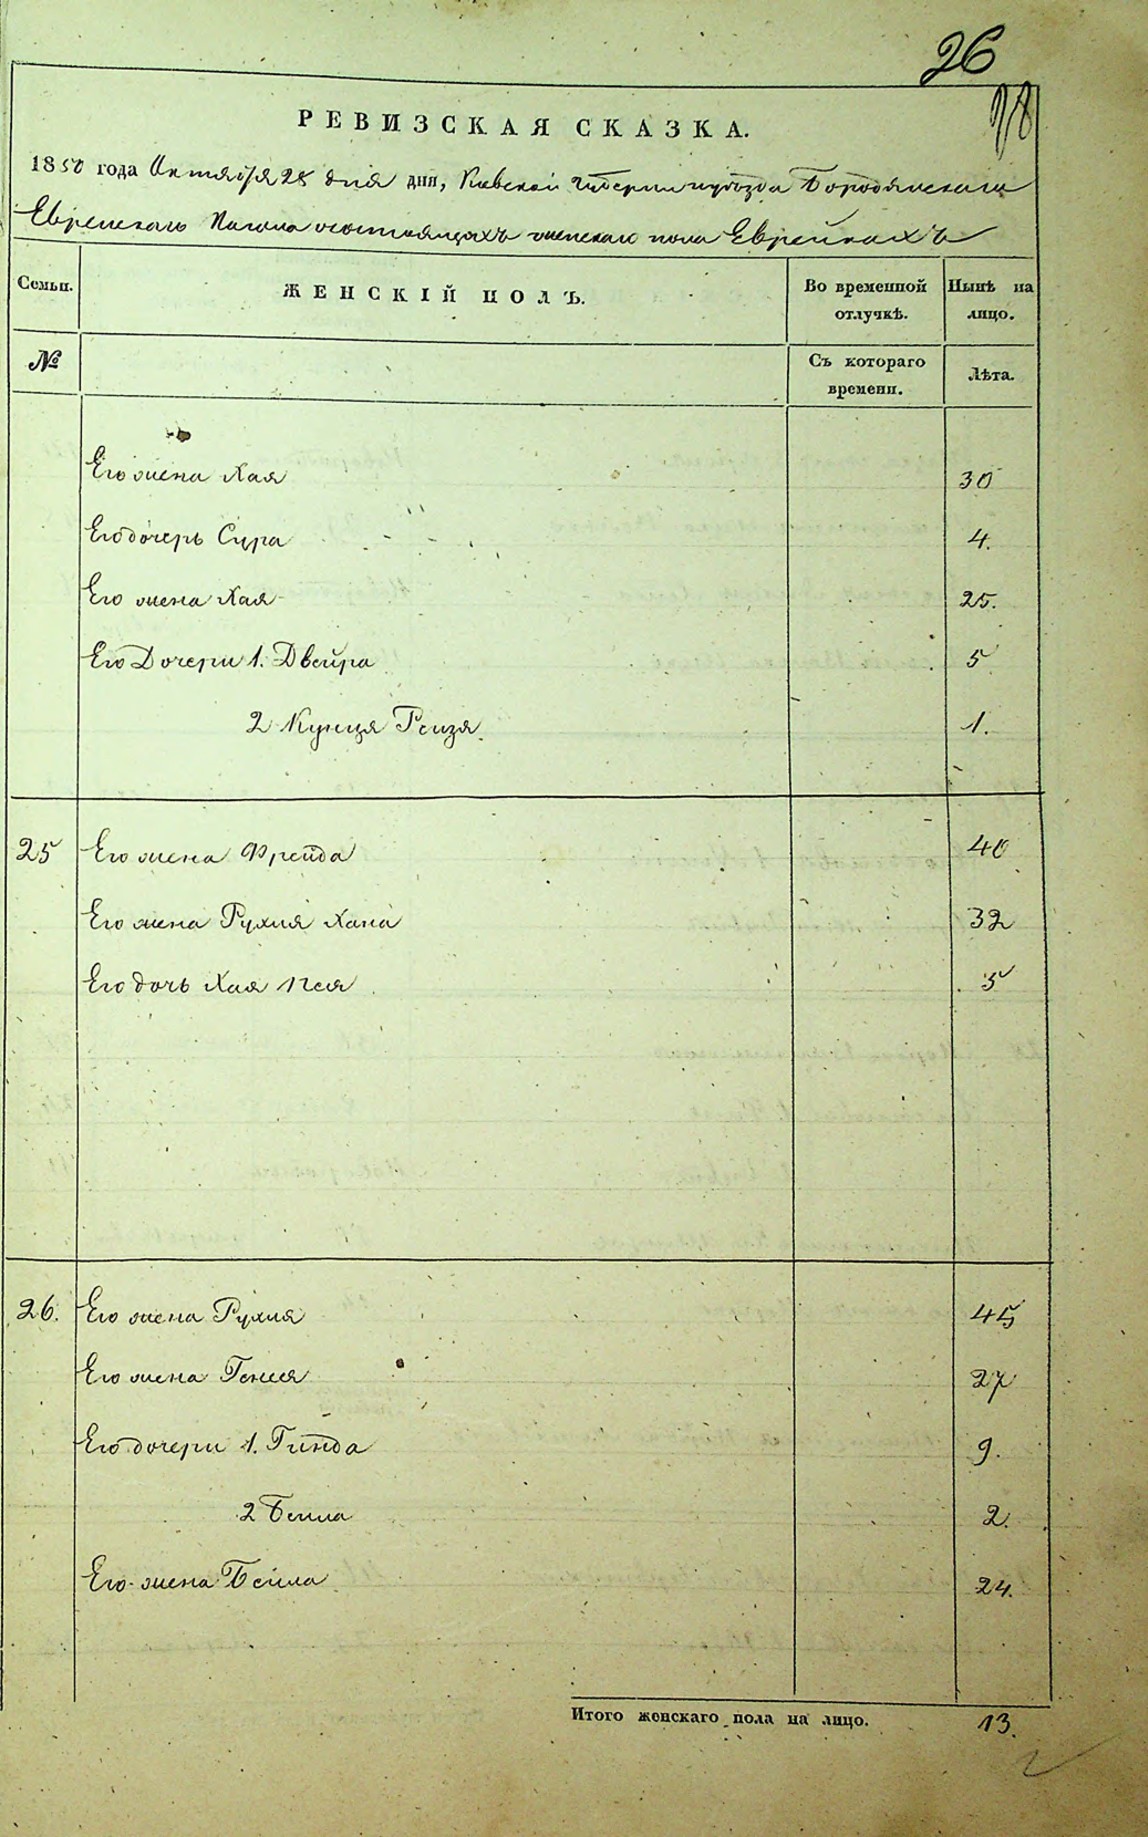 26
РЕВИЗСКАЯ СКАЗКА.
1850 года Октября 28 дня дня, Киевской Губернии и уезда Бородянскаго
Еврейскаго Кагала о состоящихъ женскаго пола Еврейкахъ
Семьи. ЖЕНСКІЙ ПОЛЪ. Во временной отлучкѣ. Нынѣ на лицо.
№ Съ котораго времени. Лѣта.
Его жена Хая 30
Его дочерь Сура 4.
Его жена Хая 25.
Его Дочери 1. Двейра 5
2 Кунця Рейзя 1.
25 Его жена Фрейда 40
Его жена Рухля Хана 32
Его дочь Хая Песя 5
26. Его жена Рухля 45
Его жена Генеся 27
Его дочери 1. Гинда 9.
2 Бейла 2.
Его жена Бейла 24.
Итого женскаго пола на лицо. 13.